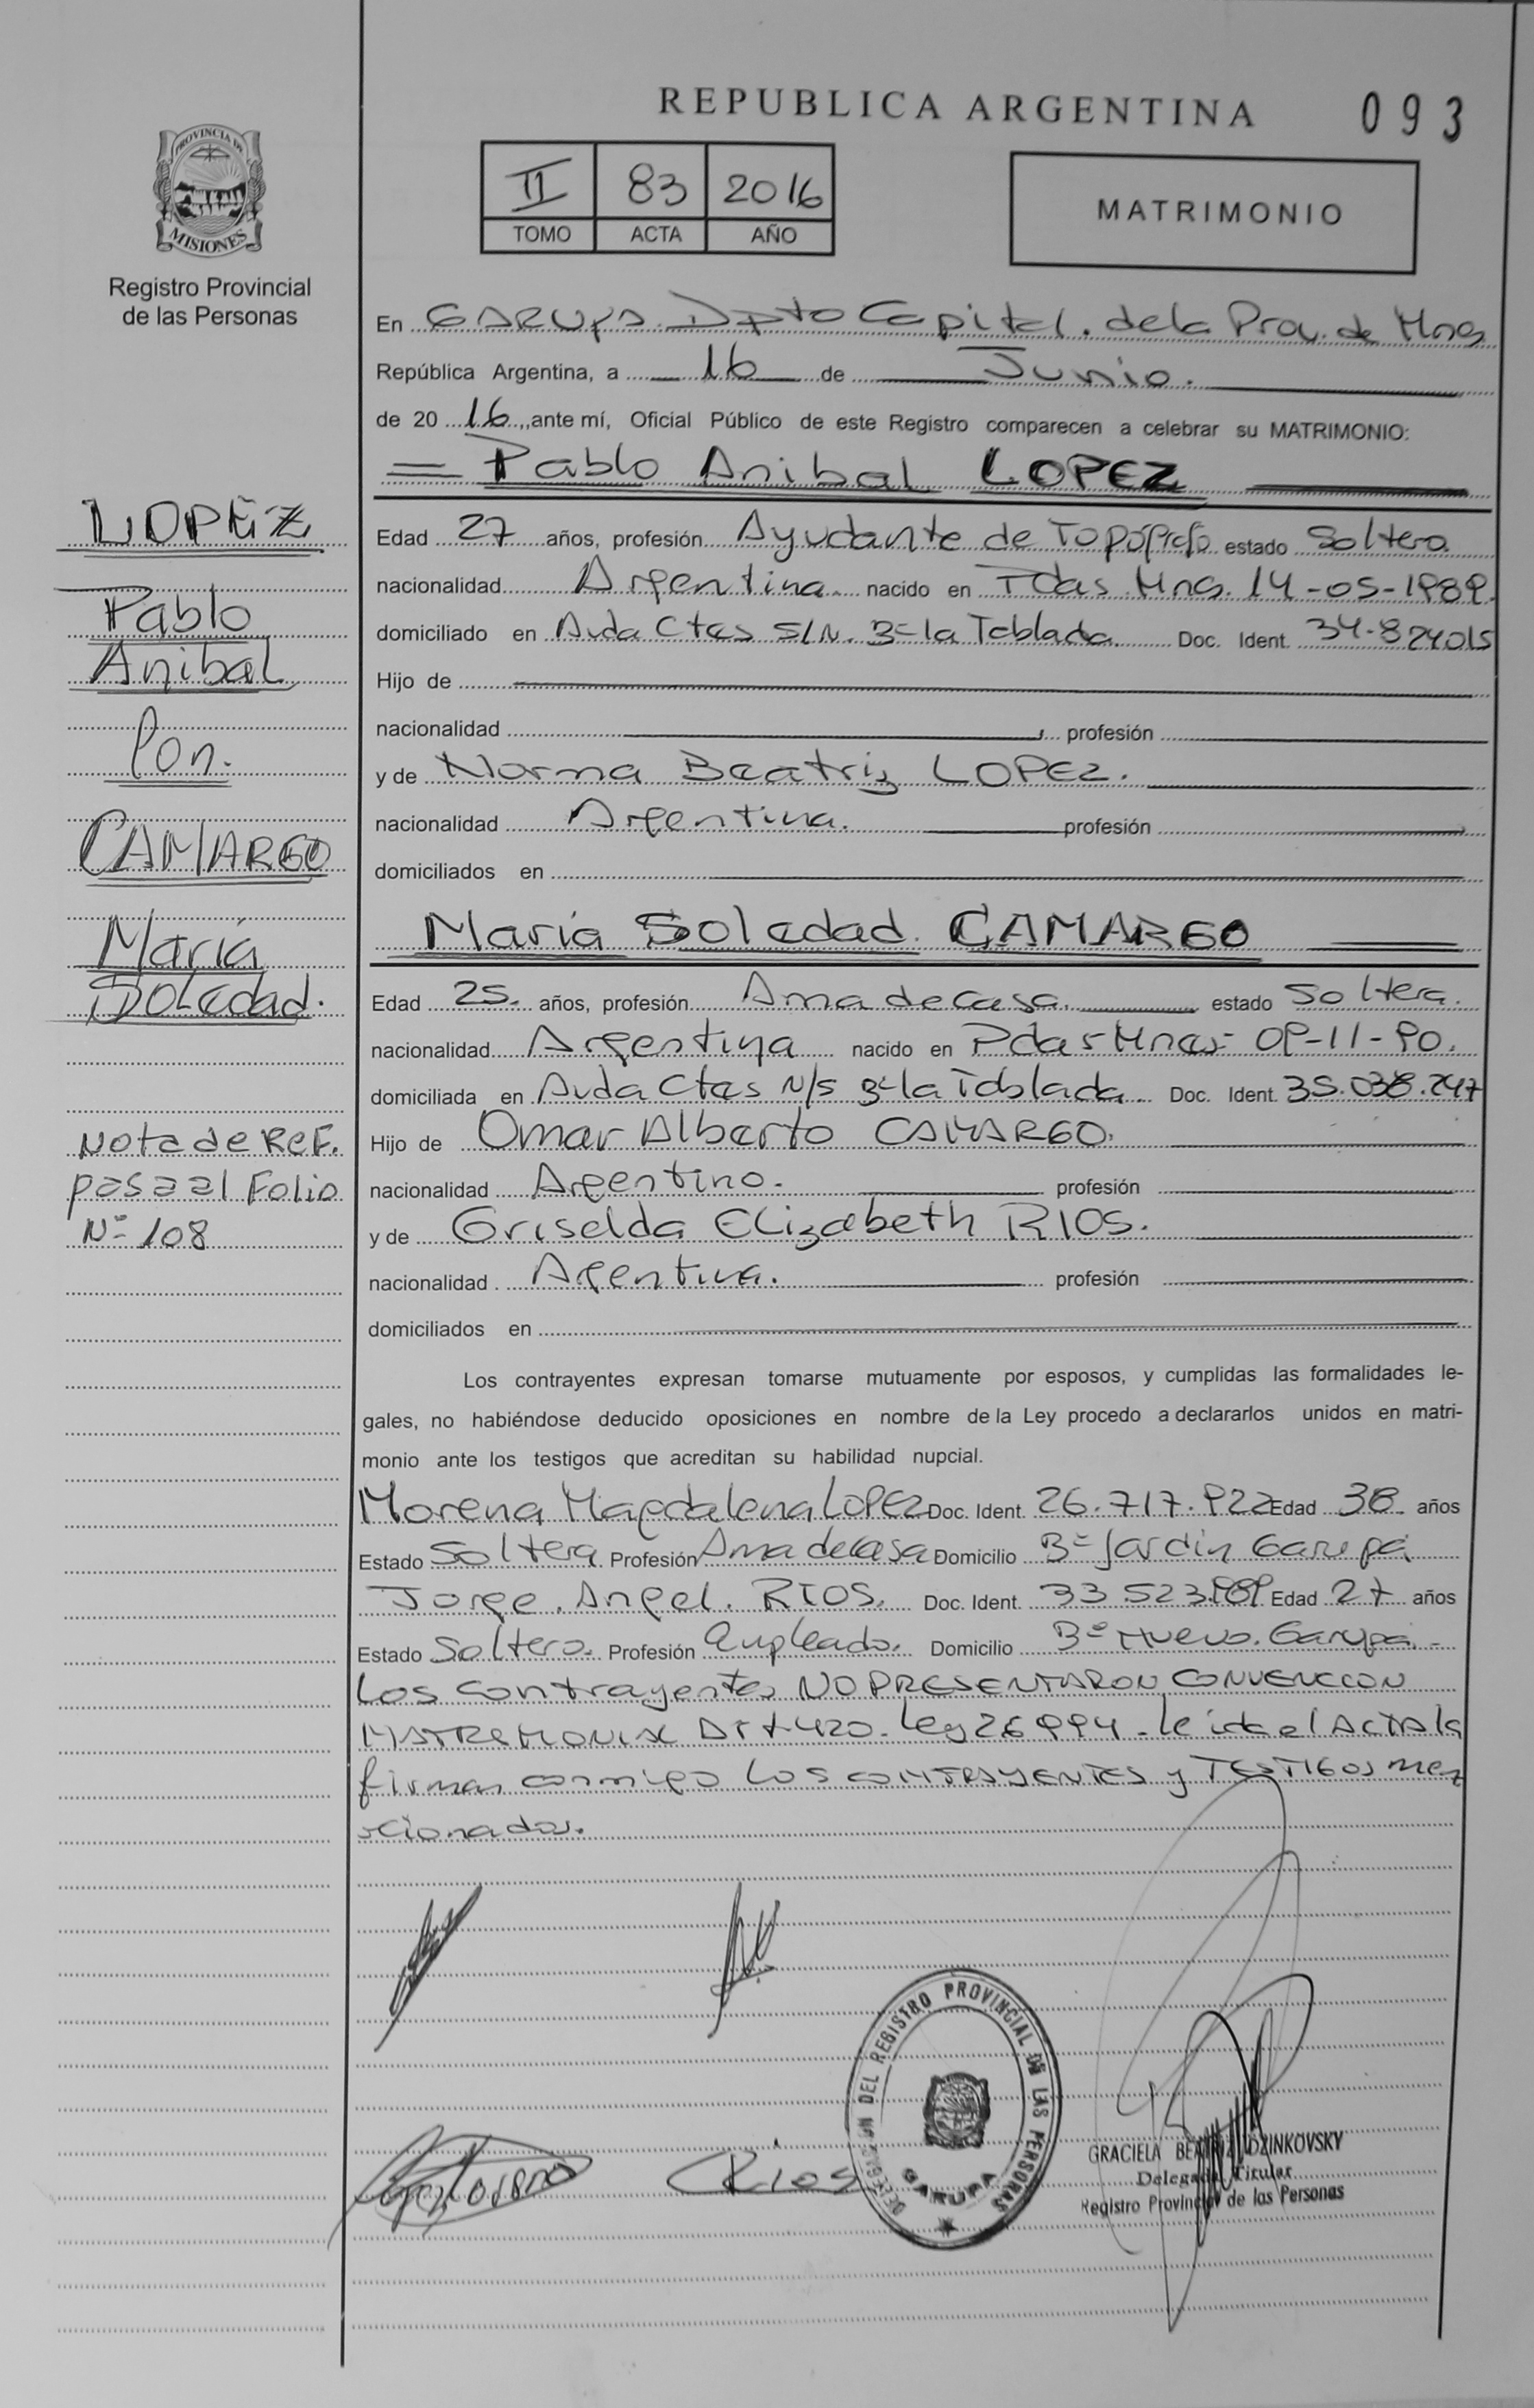 REPUBLICA ARGENTINA
093
PROVINCIA DE
MISIONES
Registro Provincial
de las Personas
II 83 2016
TOMO ACTA AÑO
MATRIMONIO
En Garupa Dpto Capital. de la Prov. de Mnes
República Argentina, a 16 de Junio.
de 20 16, ante mí, Oficial Público de este Registro comparecen a celebrar su MATRIMONIO:
Pablo Anibal LOPEZ
Edad 27 años, profesión Ayudante de Topógrafo estado Soltero
nacionalidad Argentina nacido en Pdas Mnes. 14-05-1989.
domiciliado en Avda Ctes S/N. Bº la Tablada. Doc. Ident. 34.824015
Hijo de
nacionalidad profesión
y de Norma Beatriz LOPEZ.
nacionalidad Argentina. profesión
domiciliados en
María Soledad CAMARGO
Edad 25. años, profesión Ama de casa. estado Soltera.
nacionalidad Argentina nacido en Pdas Mnes- 09-11-90.
domiciliada en Avda Ctes N/S Bº la Tablada. Doc. Ident. 35.038.247
Hijo de Omar Alberto CAMARGO.
nacionalidad Argentino. profesión
y de Griselda Elizabeth RIOS.
nacionalidad Argentina. profesión
domiciliados en
Los contrayentes expresan tomarse mutuamente por esposos, y cumplidas las formalidades le-
gales, no habiéndose deducido oposiciones en nombre de la Ley procedo a declararlos unidos en matri-
monio ante los testigos que acreditan su habilidad nupcial.
Morena Magdalena LOPEZ Doc. Ident. 26.717.922 Edad 38 años
Estado Soltera Profesión Ama de casa Domicilio Bº Jardin Garupá
Jorge. Angel. RIOS. Doc. Ident. 33 523.989 Edad 27 años
Estado Soltero. Profesión Empleado. Domicilio Bº Nuevo. Garupá.
Los contrayentes NO PRESENTARON CONVENCION
MATREMONIAL Art 420. Ley 26994 - leida el ACTA la
firman conmigo los CONTRAYENTES y TESTIGOS men
cionados.
LOPEZ
Pablo
Anibal
Con.
CAMARGO
María
Soledad.
Nota de REF.
pasa al Folio
Nº 108
Rios
DELEGACION DEL REGISTRO PROVINCIAL DE LAS PERSONAS
GARUPA
GRACIELA BEATRIZ DZINKOVSKY
Delegada Titular
Registro Provincial de las Personas